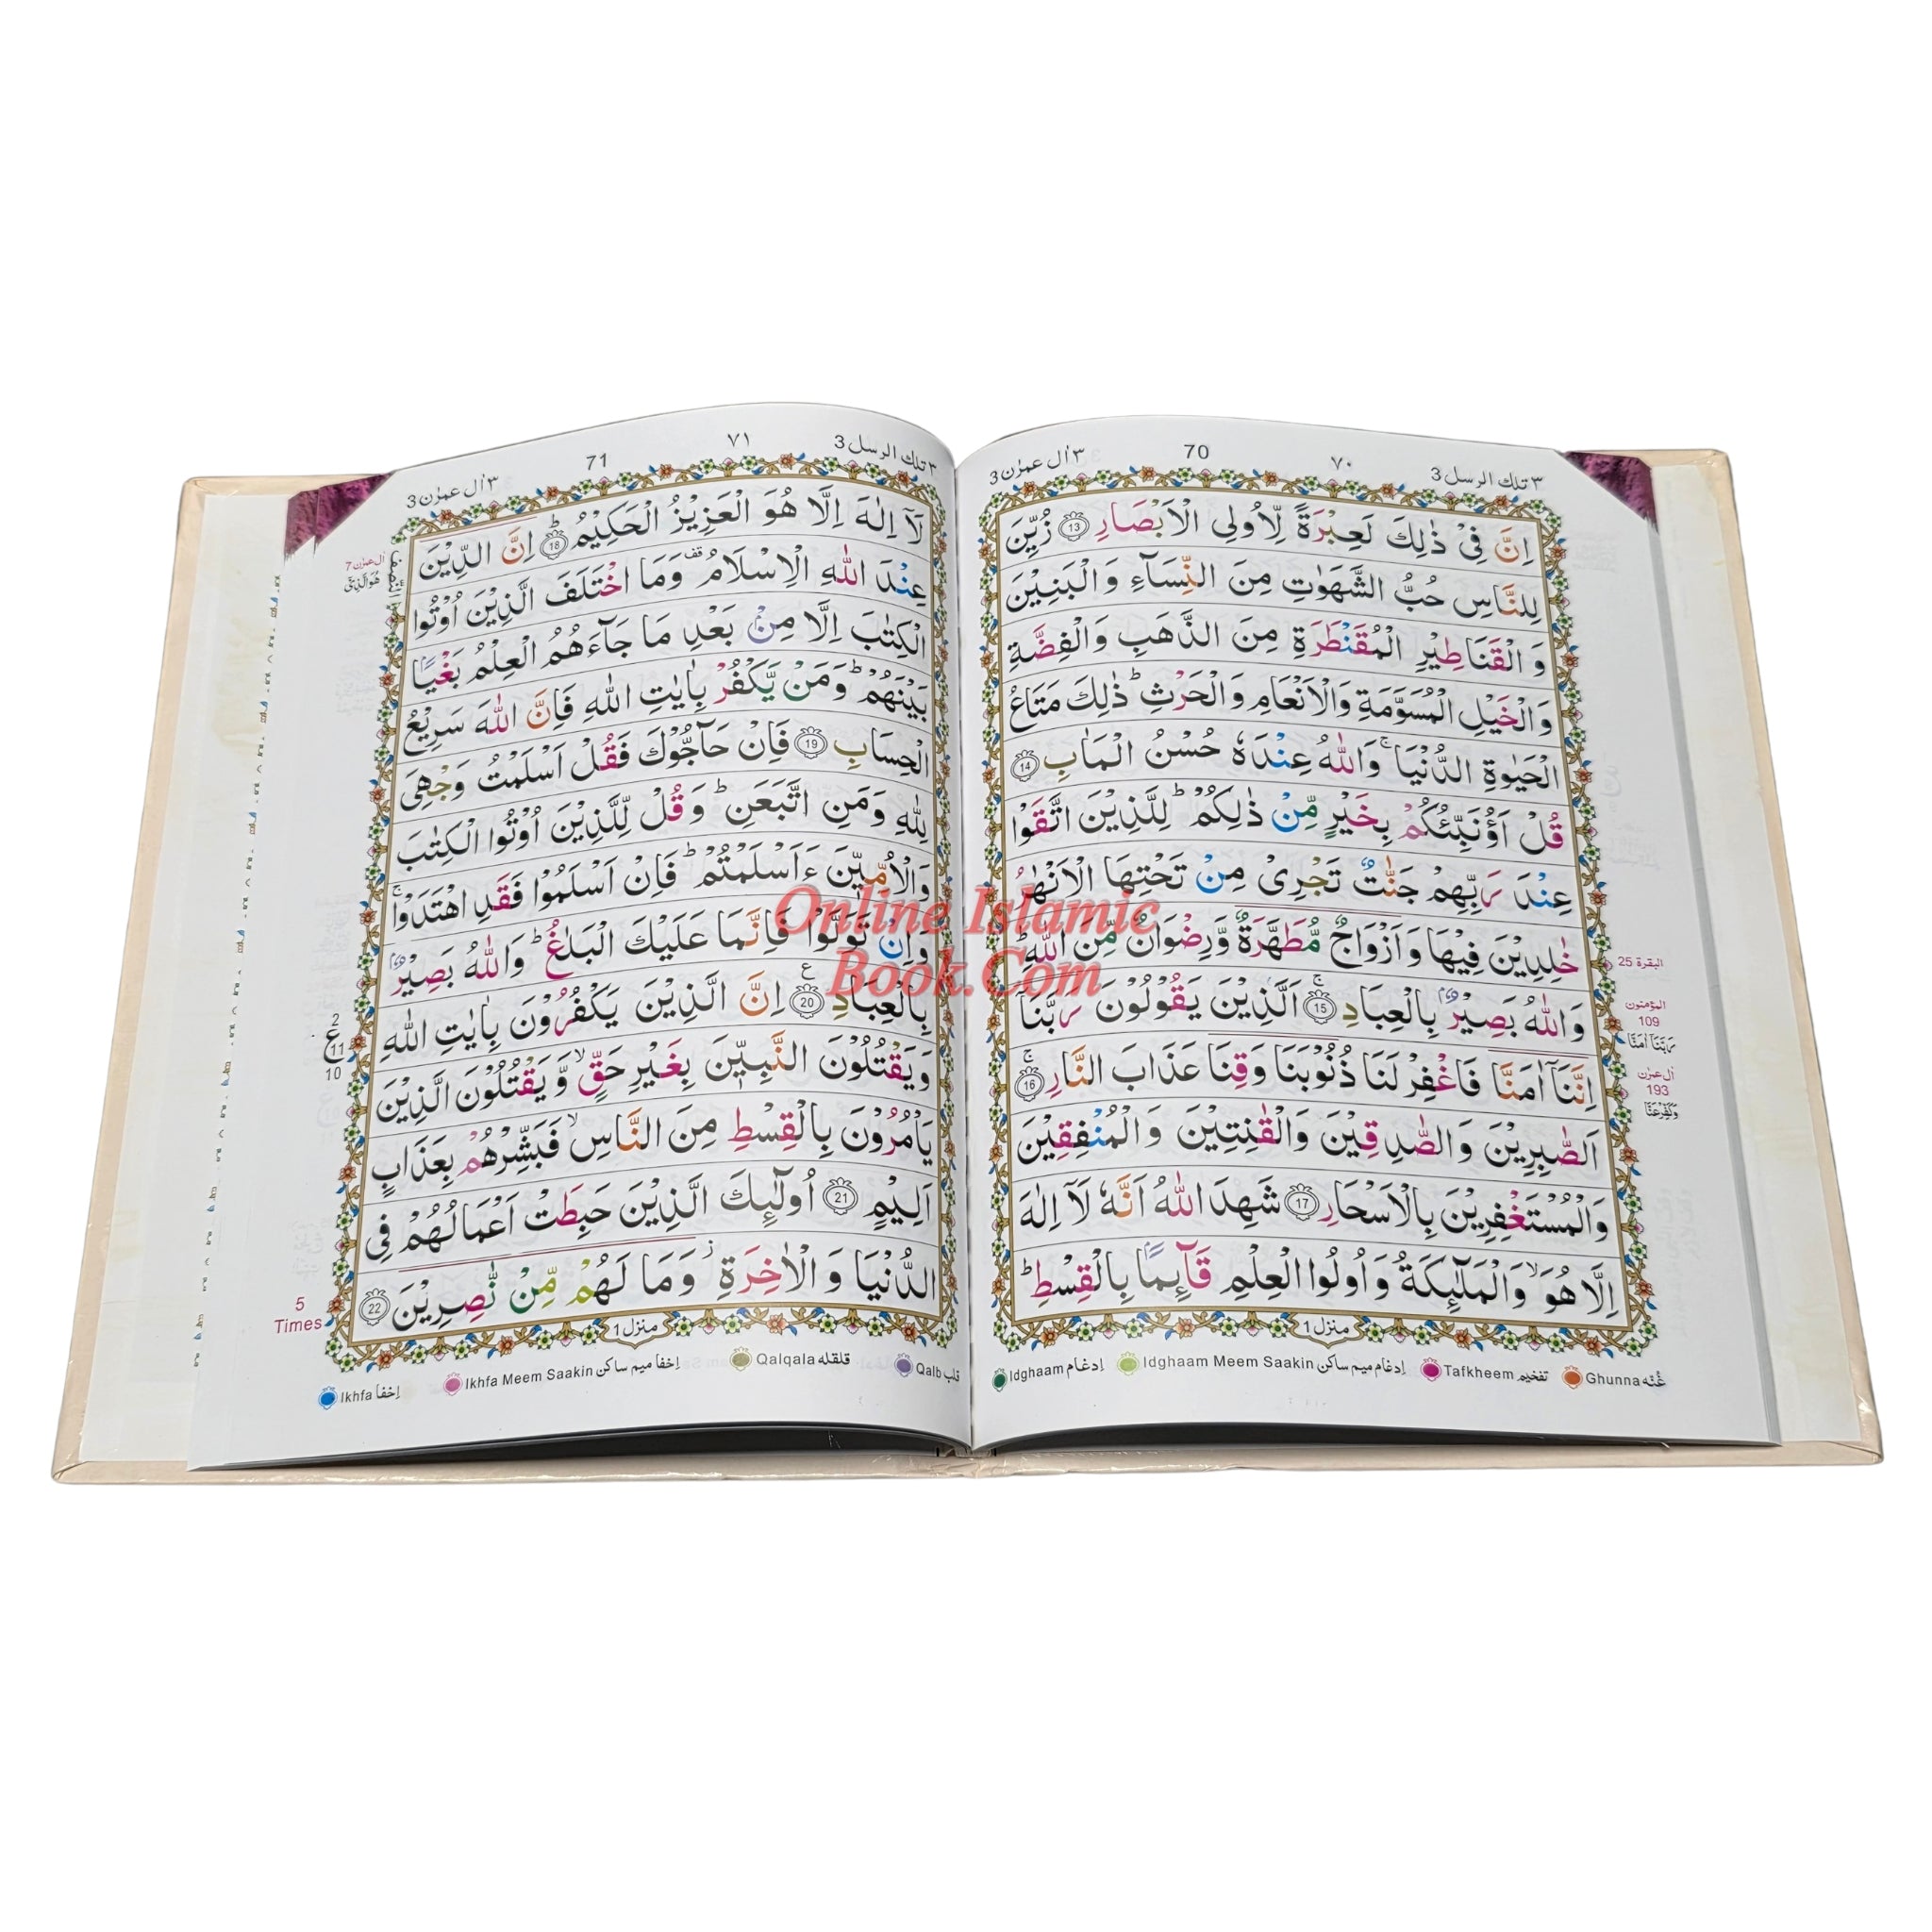 ٣ تلك الرسل 3
٧٠
70
٣ اٰل عمرٰن 3
اِنَّ فِیْ ذٰلِكَ لَعِبْرَةً لِّاُولِی الْاَبْصَارِ ⑬ زُیِّنَ
لِلنَّاسِ حُبُّ الشَّهَوٰتِ مِنَ النِّسَآءِ وَالْبَنِیْنَ
وَالْقَنَاطِیْرِ الْمُقَنْطَرَةِ مِنَ الذَّهَبِ وَالْفِضَّةِ
وَالْخَیْلِ الْمُسَوَّمَةِ وَالْاَنْعَامِ وَالْحَرْثِ ؕ ذٰلِكَ مَتَاعُ
الْحَیٰوةِ الدُّنْیَا ۚ وَاللّٰهُ عِنْدَهٗ حُسْنُ الْمَاٰبِ ⑭
قُلْ اَؤُنَبِّئُكُمْ بِخَیْرٍ مِّنْ ذٰلِكُمْ ؕ لِلَّذِیْنَ اتَّقَوْا
عِنْدَ رَبِّهِمْ جَنّٰتٌ تَجْرِیْ مِنْ تَحْتِهَا الْاَنْهٰرُ
خٰلِدِیْنَ فِیْهَا وَاَزْوَاجٌ مُّطَهَّرَةٌ وَّرِضْوَانٌ مِّنَ اللّٰهِ ؕ
وَاللّٰهُ بَصِیْرٌۢ بِالْعِبَادِ ⑮ۚ اَلَّذِیْنَ یَقُوْلُوْنَ رَبَّنَاۤ
اِنَّنَاۤ اٰمَنَّا فَاغْفِرْ لَنَا ذُنُوْبَنَا وَقِنَا عَذَابَ النَّارِ ⑯ۚ
اَلصّٰبِرِیْنَ وَالصّٰدِقِیْنَ وَالْقٰنِتِیْنَ وَالْمُنْفِقِیْنَ
وَالْمُسْتَغْفِرِیْنَ بِالْاَسْحَارِ ⑰ شَهِدَ اللّٰهُ اَنَّهٗ لَاۤ اِلٰهَ
اِلَّا هُوَ ۙ وَالْمَلٰٓئِكَةُ وَاُولُوا الْعِلْمِ قَآئِمًۢا بِالْقِسْطِ ؕ
منزل 1
البقرة 25
المؤمنون
109
رَبَّنَاۤ اٰمَنَّا
اٰل عمرٰن
193
وَكَفِّرْ عَنَّا
Idghaam اِدغام
Idghaam Meem Saakin اِدغام میم ساکن
Tafkheem تفخیم
Ghunna غُنّه
٣ تلك الرسل 3
٧١
71
٣ اٰل عمرٰن 3
لَاۤ اِلٰهَ اِلَّا هُوَ الْعَزِیْزُ الْحَكِیْمُ ⑱ؕ اِنَّ الدِّیْنَ
عِنْدَ اللّٰهِ الْاِسْلَامُ قف وَمَا اخْتَلَفَ الَّذِیْنَ اُوْتُوا
الْكِتٰبَ اِلَّا مِنْۢ بَعْدِ مَا جَآءَهُمُ الْعِلْمُ بَغْیًۢا
بَیْنَهُمْ ؕ وَمَنْ یَّكْفُرْ بِاٰیٰتِ اللّٰهِ فَاِنَّ اللّٰهَ سَرِیْعُ
الْحِسَابِ ⑲ فَاِنْ حَآجُّوْكَ فَقُلْ اَسْلَمْتُ وَجْهِیَ
لِلّٰهِ وَمَنِ اتَّبَعَنِ ؕ وَقُلْ لِّلَّذِیْنَ اُوْتُوا الْكِتٰبَ
وَالْاُمِّیّٖنَ ءَاَسْلَمْتُمْ ؕ فَاِنْ اَسْلَمُوْا فَقَدِ اهْتَدَوْا ۚ
وَاِنْ تَوَلَّوْا فَاِنَّمَا عَلَیْكَ الْبَلٰغُ ؕ وَاللّٰهُ بَصِیْرٌۢ
بِالْعِبَادِ ⑳ ع اِنَّ الَّذِیْنَ یَكْفُرُوْنَ بِاٰیٰتِ اللّٰهِ
وَیَقْتُلُوْنَ النَّبِیّٖنَ بِغَیْرِ حَقٍّ ۙ وَّیَقْتُلُوْنَ الَّذِیْنَ
یَاْمُرُوْنَ بِالْقِسْطِ مِنَ النَّاسِ ۙ فَبَشِّرْهُمْ بِعَذَابٍ
اَلِیْمٍ ㉑ اُولٰٓئِكَ الَّذِیْنَ حَبِطَتْ اَعْمَالُهُمْ فِی
الدُّنْیَا وَالْاٰخِرَةِ ؗ وَمَا لَهُمْ مِّنْ نّٰصِرِیْنَ ㉒
منزل 1
اٰل عمرٰن 7
هُوَ الَّذِیْۤ
2
ع
11
10
5
Times
Ikhfa اِخفا
Ikhfa Meem Saakin اِخفا میم ساکن
Qalqala قلقله
Qalb قلب
Online Islamic
Book.Com